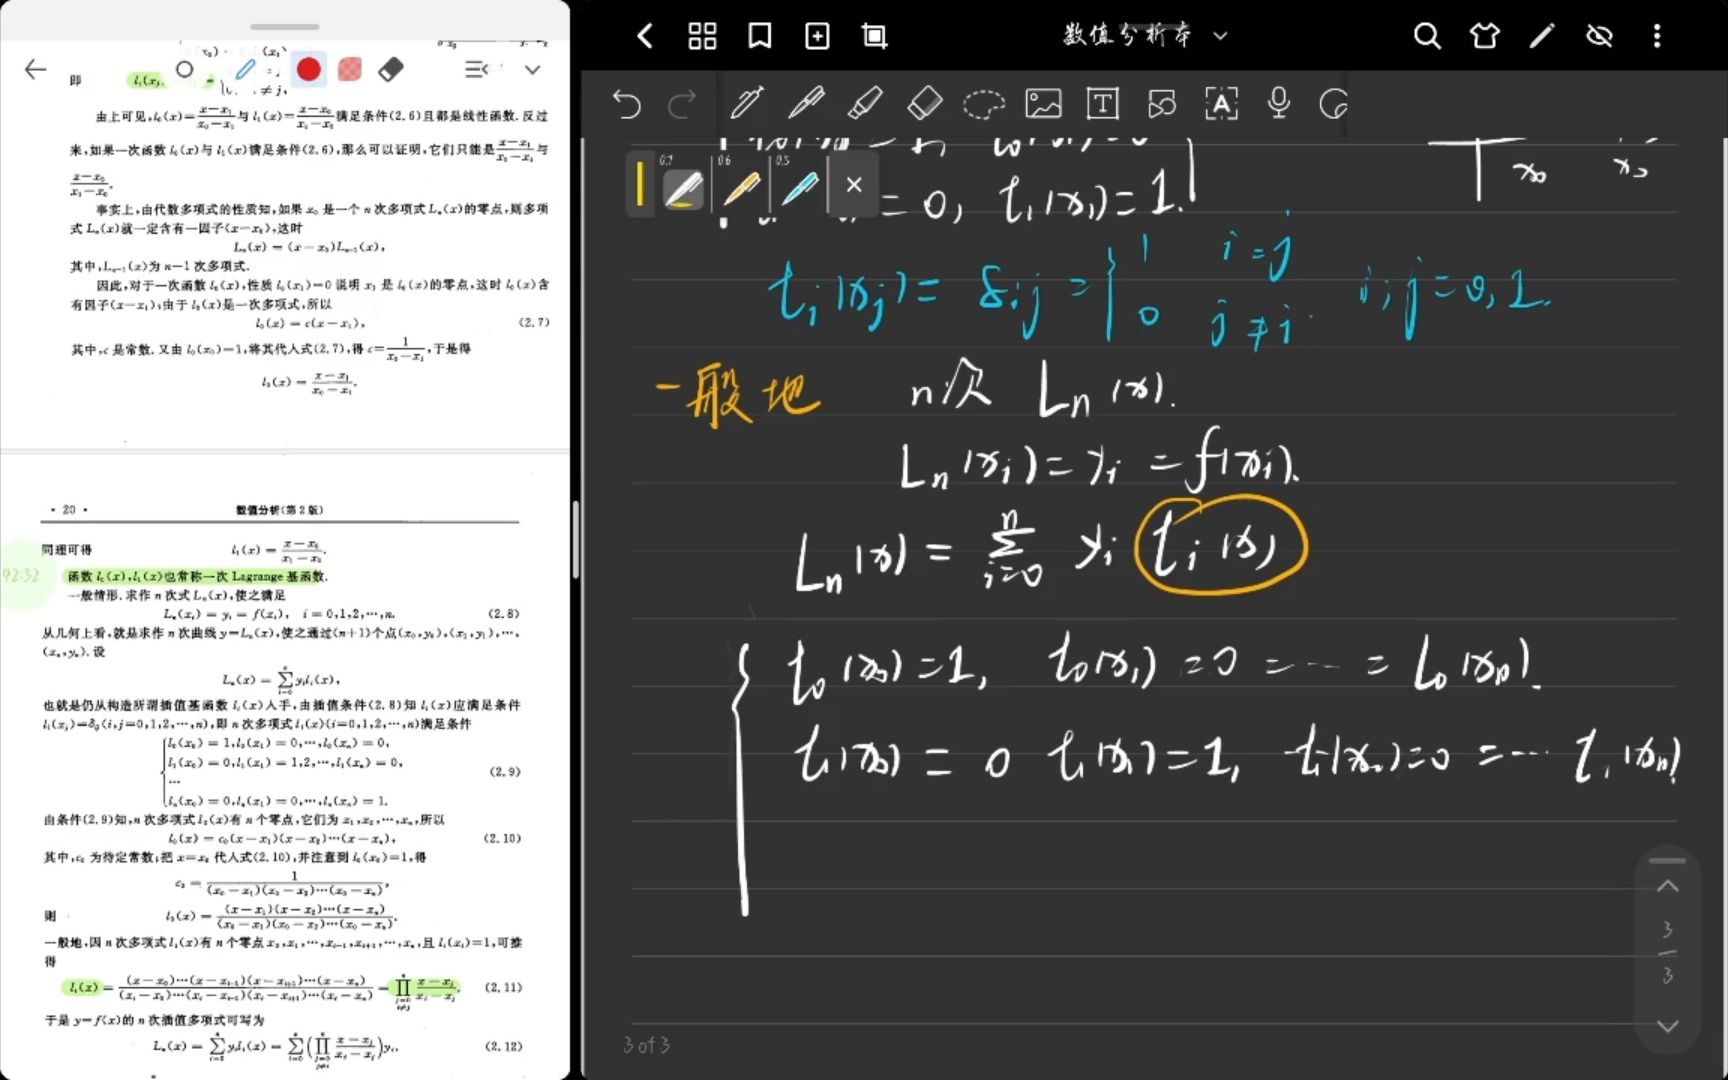 即 l₁(xⱼ
≠ j,
由上可见,l₀(x)=(x-x₁)/(x₀-x₁)与 l₁(x)=(x-x₀)/(x₁-x₀)满足条件(2.6)且都是线性函数.反过
来,如果一次函数 l₀(x)与 l₁(x)满足条件(2.6),那么可以证明,它们只能是(x-x₁)/(x₀-x₁)与
(x-x₀)/(x₁-x₀).
事实上,由代数多项式的性质知,如果 x₀ 是一个 n 次多项式 Lₙ(x)的零点,则多项
式 Lₙ(x)就一定含有一因子(x-x₀),这时
Lₙ(x) = (x-x₀)Lₙ₋₁(x),
其中,Lₙ₋₁(x)为 n-1 次多项式.
因此,对于一次函数 l₀(x),性质 l₀(x₁)=0 说明 x₁ 是 l₀(x)的零点,这时 l₀(x)含
有因子(x-x₁);由于 l₀(x)是一次多项式,所以
l₀(x) = c(x-x₁), (2.7)
其中,c 是常数.又由 l₀(x₀)=1,将其代入式(2.7),得 c=1/(x₀-x₁),于是得
l₀(x) = (x-x₁)/(x₀-x₁).
· 20 · 数值分析(第 2 版)
同理可得 l₁(x) = (x-x₀)/(x₁-x₀).
42:32
函数 l₀(x),l₁(x)也常称一次 Lagrange 基函数.
一般情形.求作 n 次式 Lₙ(x),使之满足
Lₙ(xᵢ) = yᵢ = f(xᵢ), i = 0,1,2,⋯,n. (2.8)
从几何上看,就是求作 n 次曲线 y=Lₙ(x),使之通过(n+1)个点(x₀,y₀),(x₁,y₁),⋯,
(xₙ,yₙ).设
Lₙ(x) = ∑ᵢ₌₀ⁿ yᵢlᵢ(x),
也就是仍从构造所谓插值基函数 lᵢ(x)入手,由插值条件(2.8)知 lᵢ(x)应满足条件
lᵢ(xⱼ)=δᵢⱼ(i,j=0,1,2,⋯,n),即 n 次多项式 lᵢ(x)(i=0,1,2,⋯,n)满足条件
l₀(x₀) = 1,l₀(x₁) = 0,⋯,l₀(xₙ) = 0,
l₁(x₀) = 0,l₁(x₁) = 1,2,⋯,l₁(xₙ) = 0,
⋯ (2.9)
lₙ(x₀) = 0,lₙ(x₁) = 0,⋯,lₙ(xₙ) = 1.
由条件(2.9)知,n 次多项式 l₀(x)有 n 个零点,它们为 x₁,x₂,⋯,xₙ,所以
l₀(x) = c₀(x-x₁)(x-x₂)⋯(x-xₙ), (2.10)
其中,c₀ 为待定常数;把 x=x₀ 代入式(2.10),并注意到 l₀(x₀)=1,得
c₀ = 1/((x₀-x₁)(x₀-x₂)⋯(x₀-xₙ)),
则 l₀(x) = ((x-x₁)(x-x₂)⋯(x-xₙ))/((x₀-x₁)(x₀-x₂)⋯(x₀-xₙ)).
一般地,因 n 次多项式 lᵢ(x)有 n 个零点 x₀,x₁,⋯,xᵢ₋₁,xᵢ₊₁,⋯,xₙ,且 lᵢ(xᵢ)=1,可推
得
lᵢ(x) = ((x-x₀)⋯(x-xᵢ₋₁)(x-xᵢ₊₁)⋯(x-xₙ))/((xᵢ-x₀)⋯(xᵢ-xᵢ₋₁)(xᵢ-xᵢ₊₁)⋯(xᵢ-xₙ)) = ∏ (x-xⱼ)/(xᵢ-xⱼ). (2.11)
于是 y=f(x)的 n 次插值多项式可写为
Lₙ(x) = ∑yᵢlᵢ(x) = ∑(∏ (x-xⱼ)/(xᵢ-xⱼ))yᵢ. (2.12)
数值分析本
0.7 0.6 0.5
= 0, l₁(x₁)=1.
x₀
lᵢ(xⱼ) = δᵢⱼ = { 1 i=j
0 j≠i. i,j=0,1.
一般地 n次 Lₙ(x).
Lₙ(xᵢ) = yᵢ = f(xᵢ).
Lₙ(x) = ∑ᵢ₌₀ⁿ yᵢ lᵢ(x)
l₀(x₀)=1, l₀(x₁)=0=⋯=l₀(xₙ).
l₁(x₀)=0 l₁(x₁)=1, l₁(x₂)=0=⋯ l₁(xₙ)
3
3
3 of 3